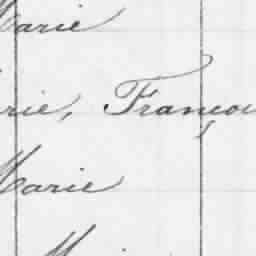 Marie
rie, Françoi
Marie